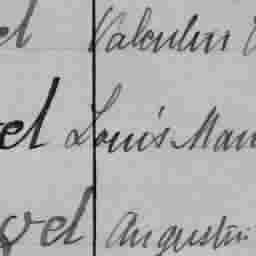 el Valentin
el Louis Mau
gel Augustin